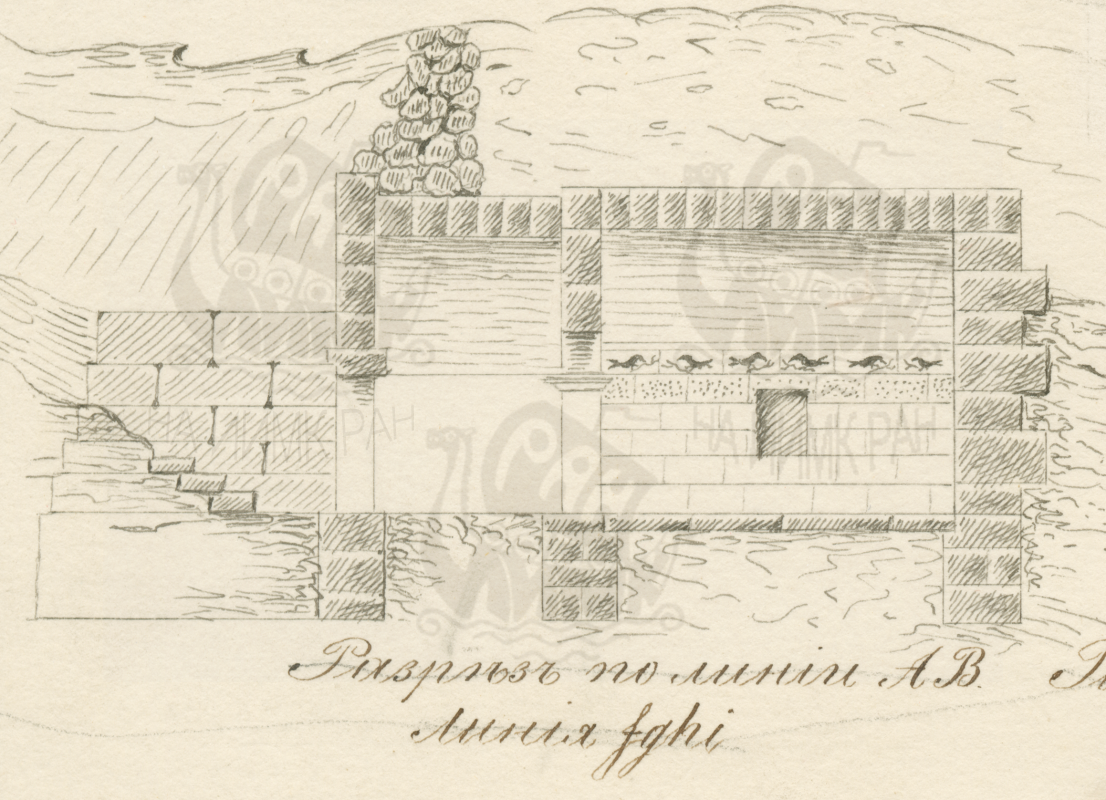 Разрѣзъ по линіи АВ.
линія fghi
НА ИИМК РАН
НА ИИМК РАН